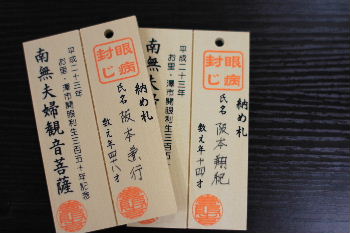 眼病
封じ
納め札
氏名 阪本業行
数え年四十八才
平成二十三年
お里・澤市開眼利生三百五十年記念
南無夫婦観音菩薩
眼病
封じ
納め札
氏名 阪本
数え年十四才
平成二十三年
お里・澤市開眼利生三百五
南無夫